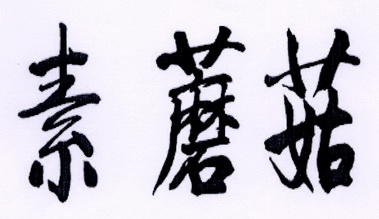 素蘑菇